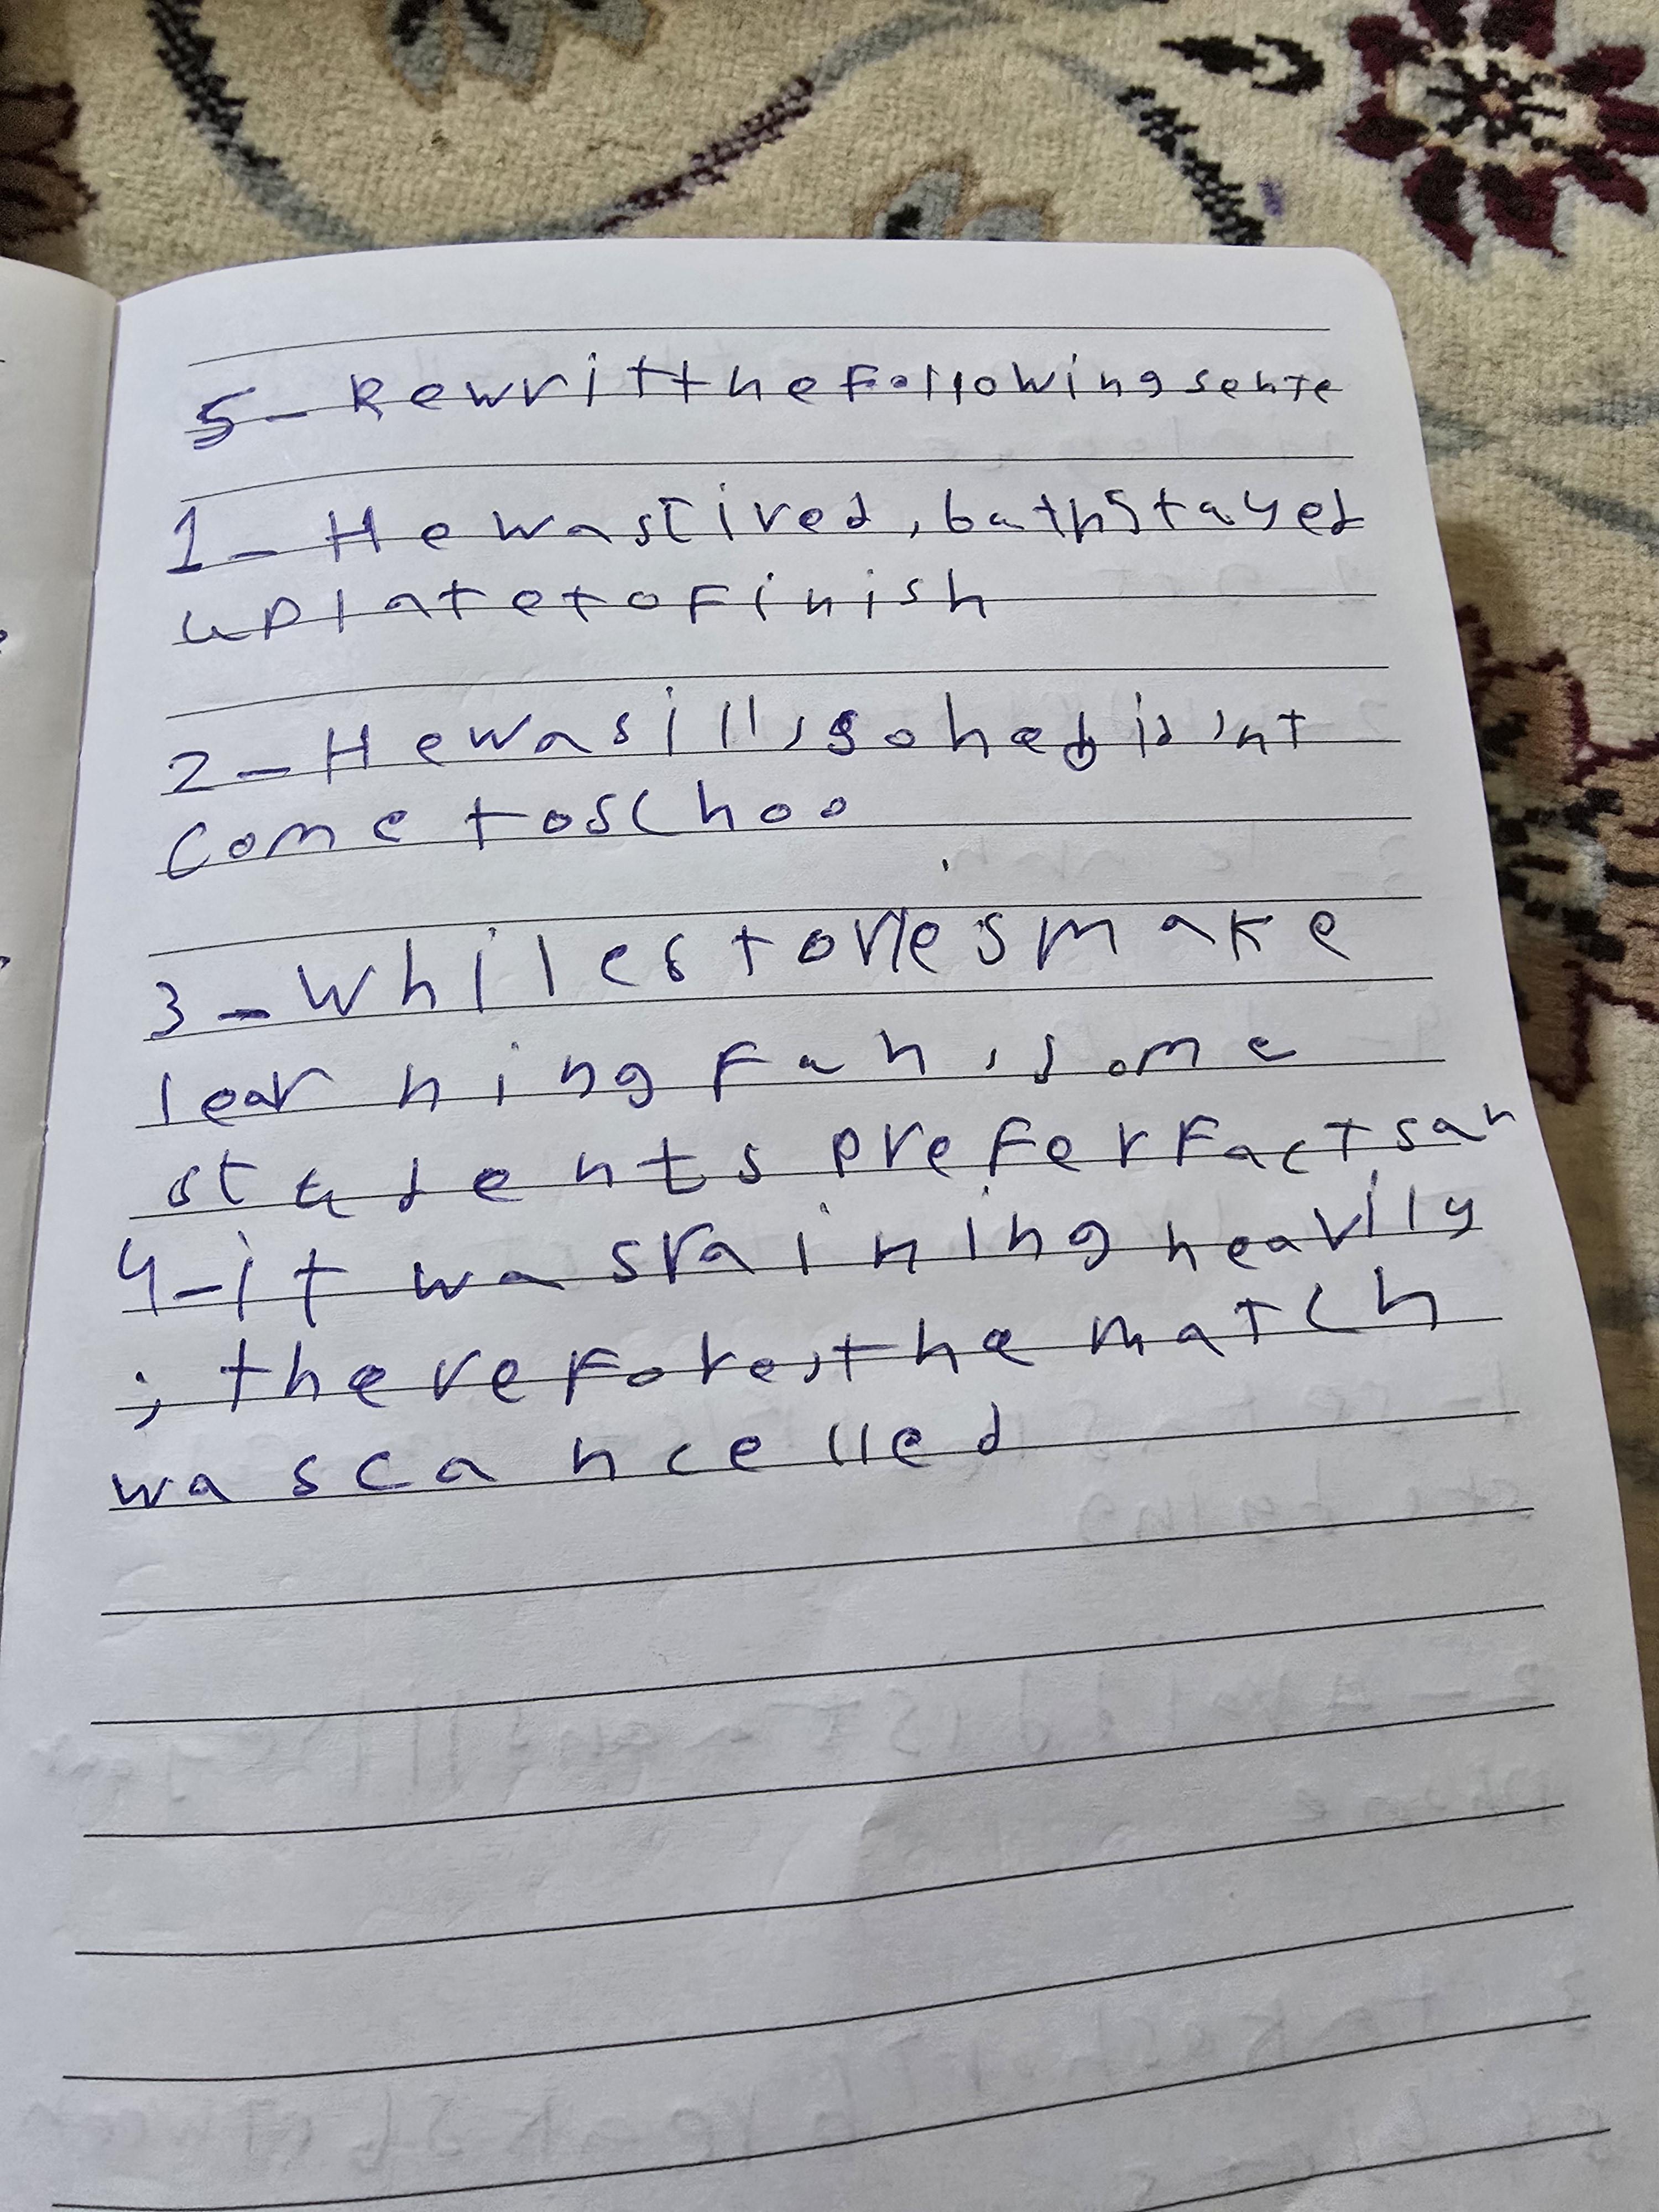 5- Rewrit the following sente
1- He was tired, bathstayed
up late to finish
2- He was ill, so hed id'nt
come to schoo
3- While stories make
learning fun, some
students prefer facts an
4- it was raining heavily
; therefore, the match
was cancelled